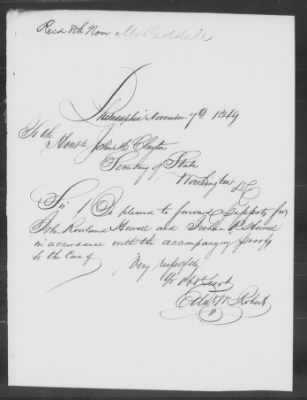 Recd 8th Nov Mr
Philadelphia November 7th 1849
To the
Honble John M. Clayton
Secretary of State
Washington DC
Sir
Be pleased to forward Passports for
John Rowland Howell and
in accordance with the accompanying proofs
to the Care of
Very respectfully
Yr Obt Servt